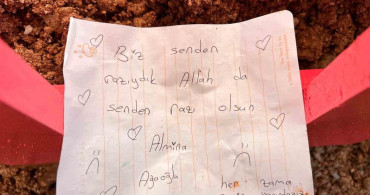 Biz senden
razıydık Allah da
senden razı olsun
Almina
Ağaoğlu
her zama